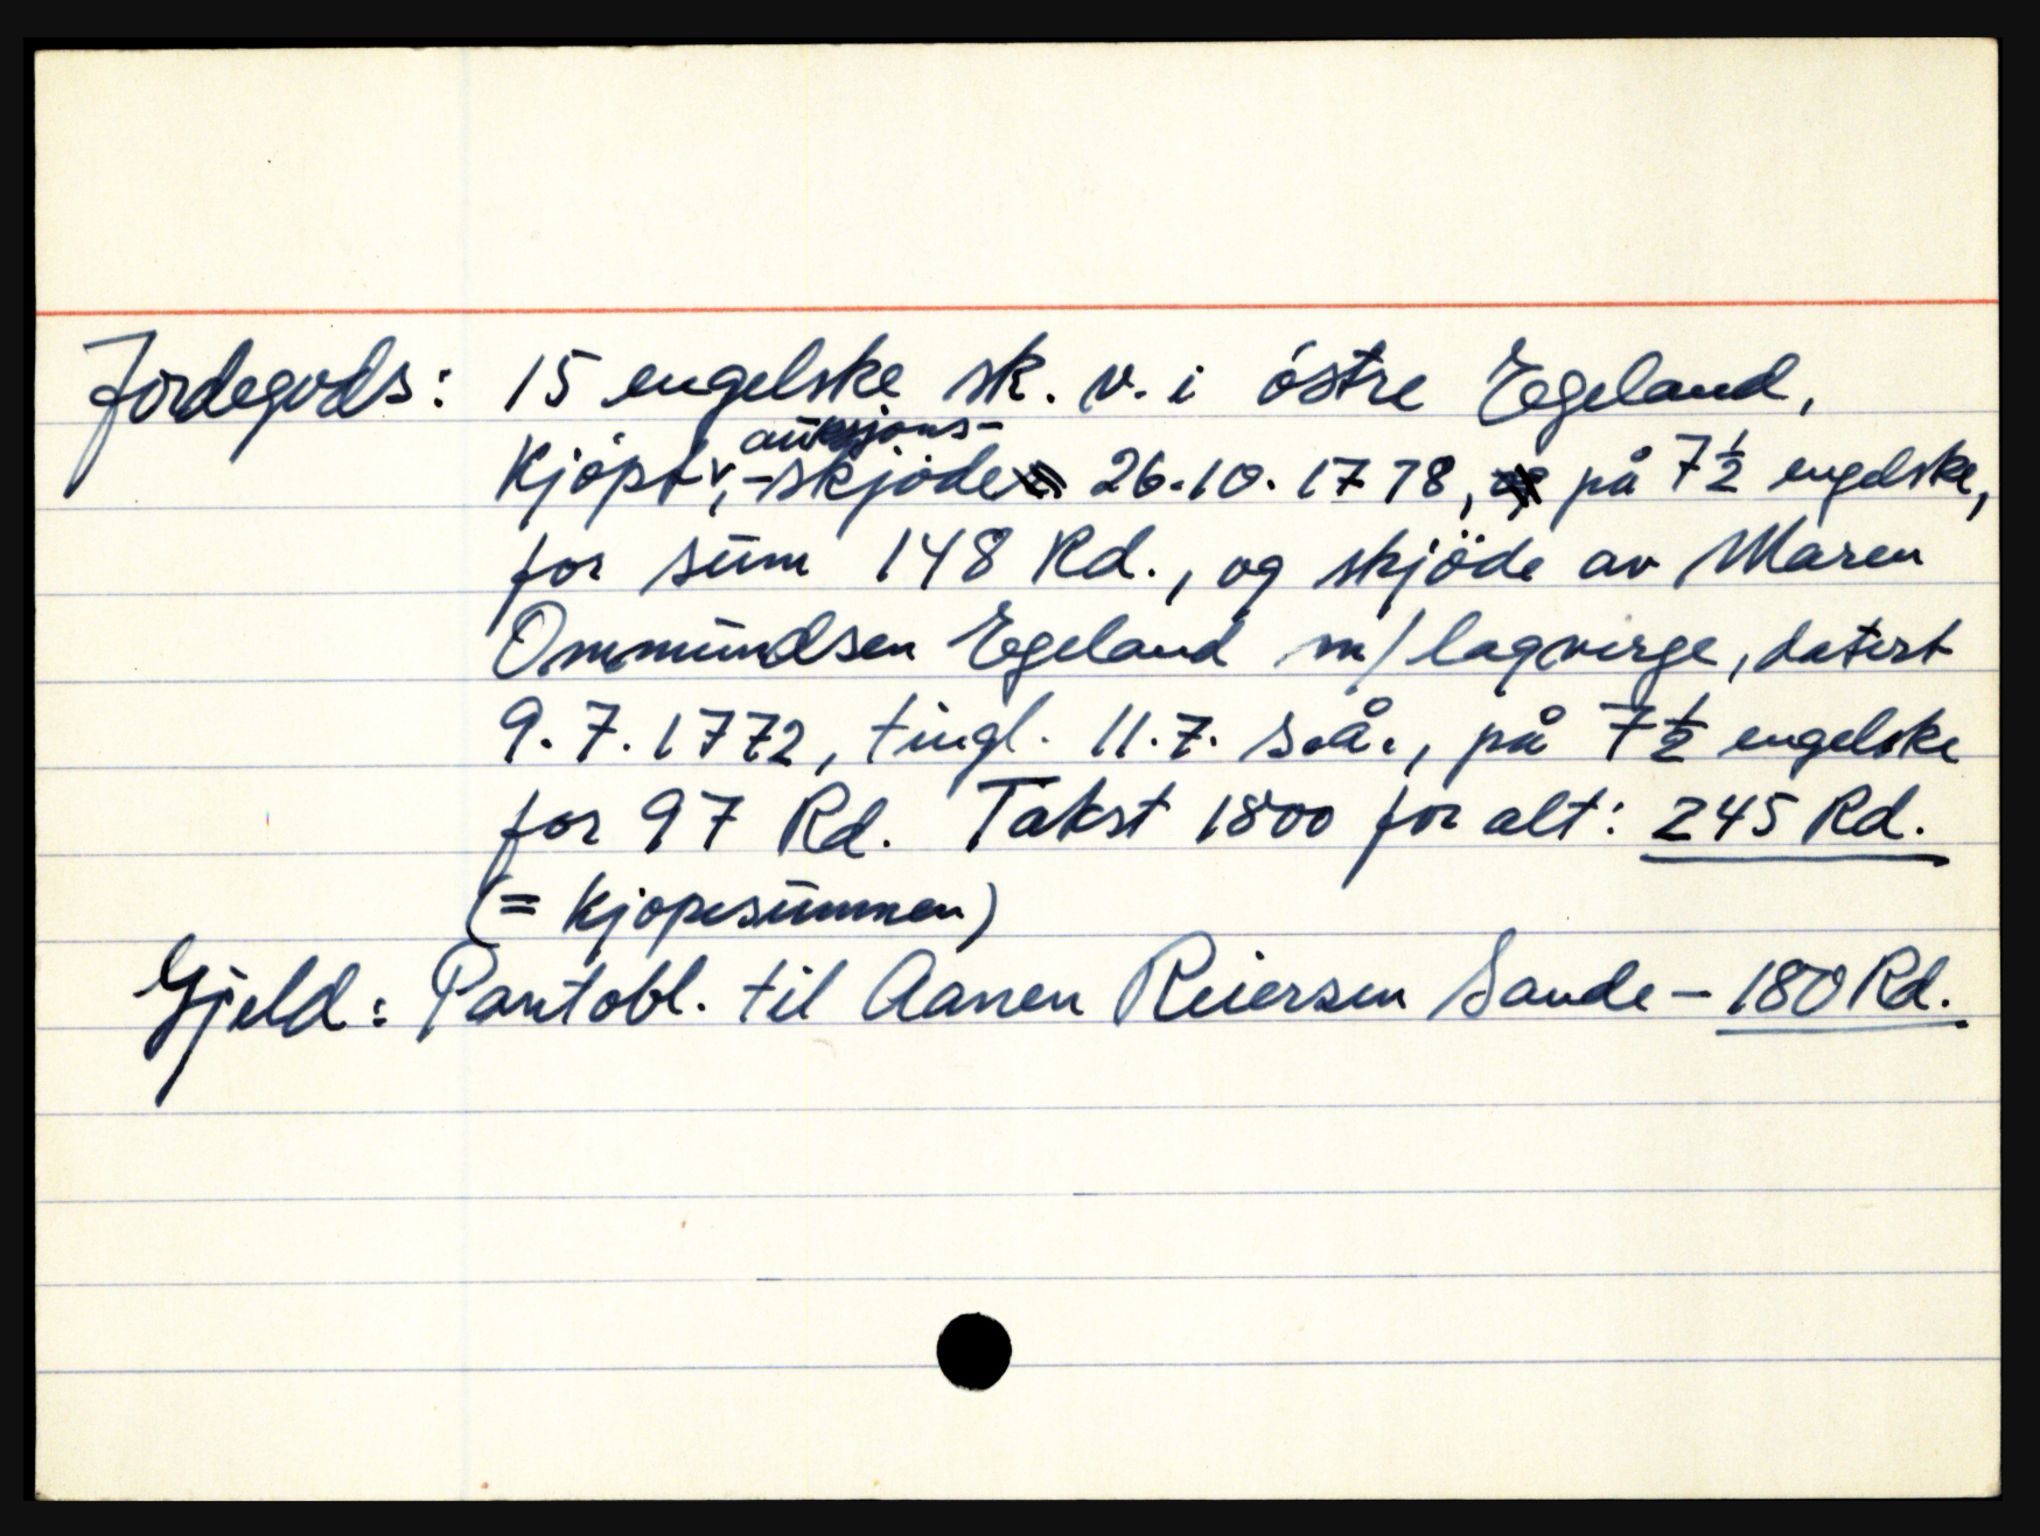 Jordegods: 15 engelske sk. v. i östre Egeland,
kjöpt v, auksjons-
-skjöde 26.10.1778, på 7½ engelske,
for sum 148 Rd., og skjöde av Maren
Ommundsen Egeland m/lagverge, datert
9.7.1772, tingl. 11.7. s.å., på 7½ engelske
for 97 Rd. Takst 1800 for alt: 245 Rd.
(= kjöpesummen)
Gjeld: Pantobl. til Aanen Reiersen Sande - 180 Rd.